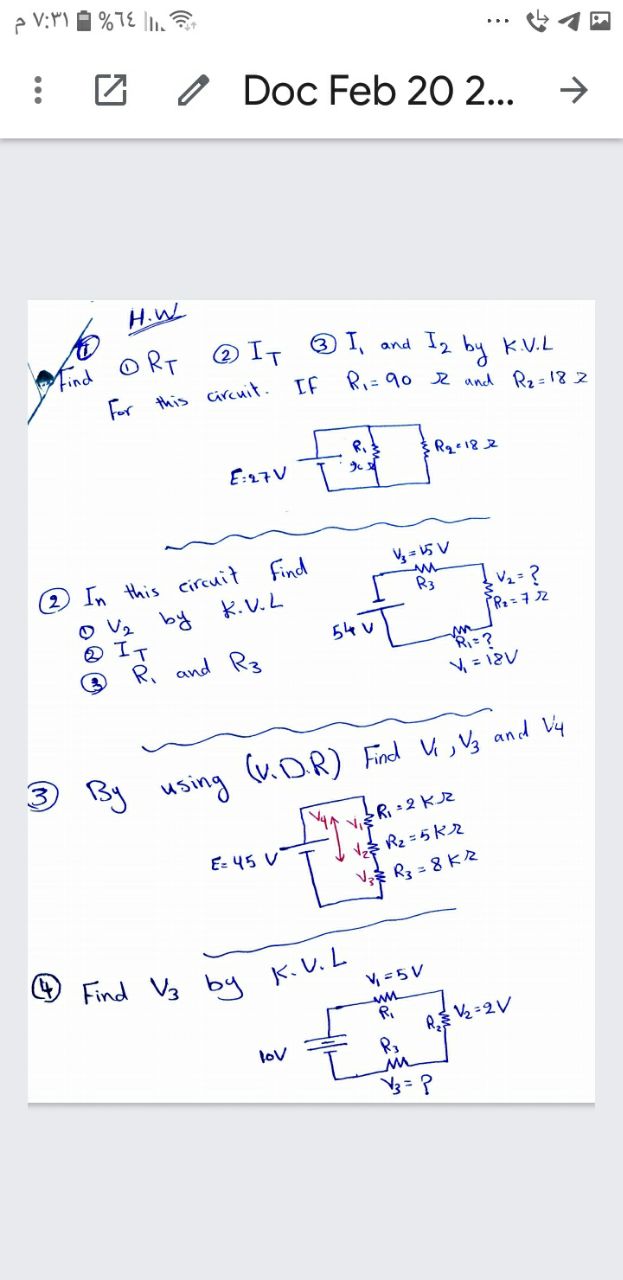 م ٧:٣١ %٦٤
Doc Feb 20 2...
H.W
① Find ① RT ② IT ③ I₁ and I₂ by K.V.L
For this circuit. IF R₁=90 Ω and R₂=18 Ω
R₁
R₂=18 Ω
E=27V
② In this circuit find
① V₂ by K.V.L
② IT
③ R₁ and R₃
V₃=15 V
R₃
V₂=?
R₂=7 Ω
54 V
R₁=?
V₁=18V
③ By using (V.D.R) Find V₁, V₃ and V4
V4 V₁ R₁=2 KΩ
V₂ R₂=5 KΩ
E=45 V
V₃ R₃=8 KΩ
④ Find V₃ by K.V.L
V₁=5V
R₁
R₂ V₂=2V
10V
R₃
V₃=?